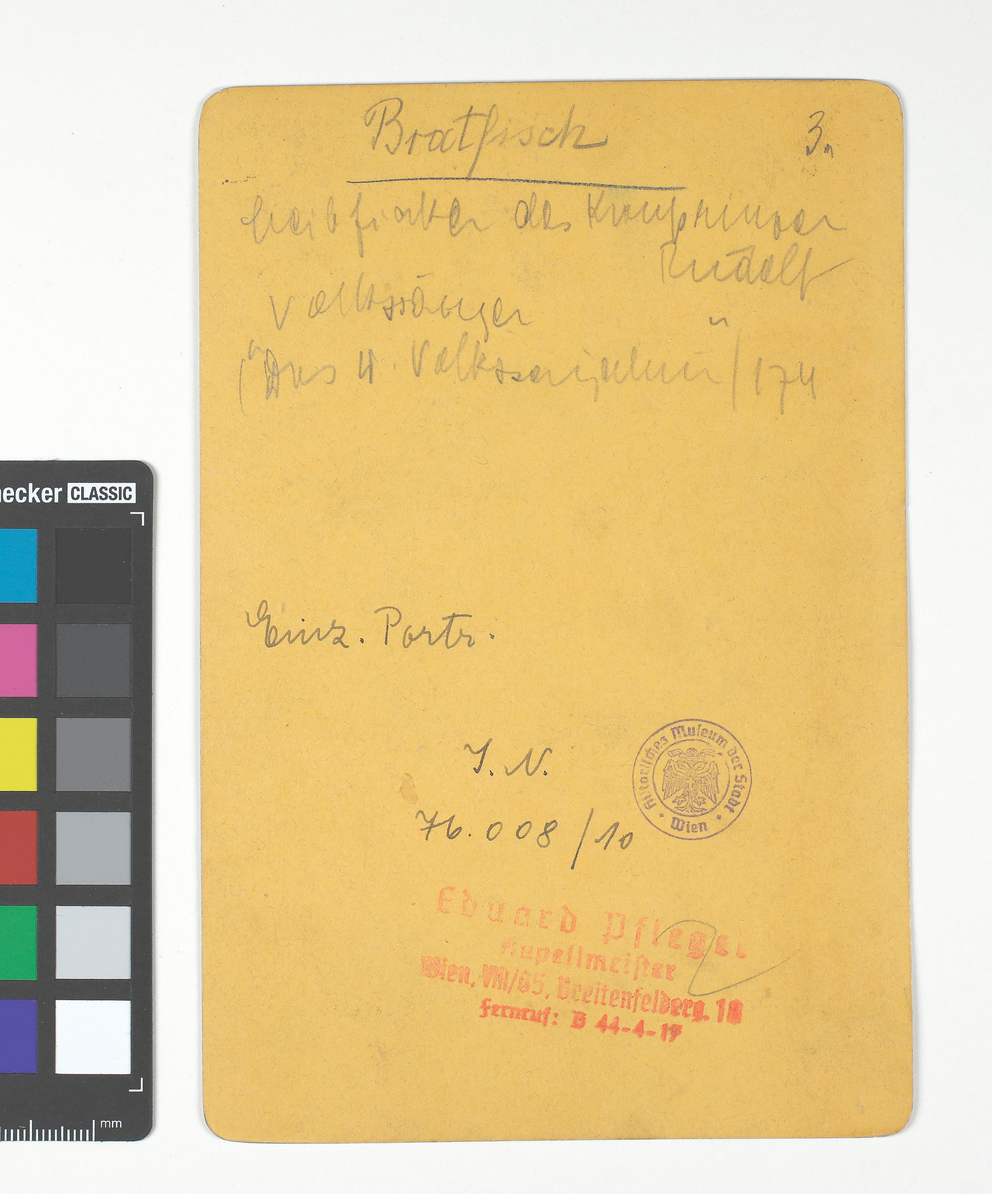 Bratfisch
3.
Leibfiaker des Kronprinzen
Rudolf
Volkssänger
("Das W. Volkssängertum"/174
Einz. Portr.
I. N.
76.008/10
Historisches Museum der Stadt Wien
Eduard Pfleger
Kapellmeister
Wien, VIII/65, Breitenfelderg. 18
Fernruf: B 44-4-17
ecker CLASSIC
mm